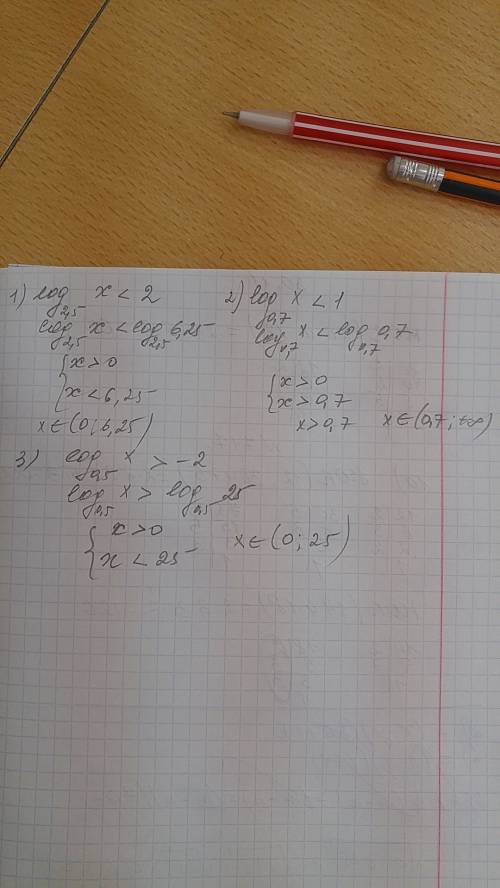 1) log₂,₅ x < 2
log₂,₅ x < log₂,₅ 6,25
{ x > 0
x < 6,25
x ∈ (0; 6,25)
2) log₀,₇ x < 1
log₀,₇ x < log₀,₇ 0,7
{ x > 0
x > 0,7
x > 0,7 x ∈ (0,7; +∞)
3) log₀,₅ x > -2
log₀,₅ x > log₀,₅ 25
{ x > 0
x < 25 x ∈ (0; 25)